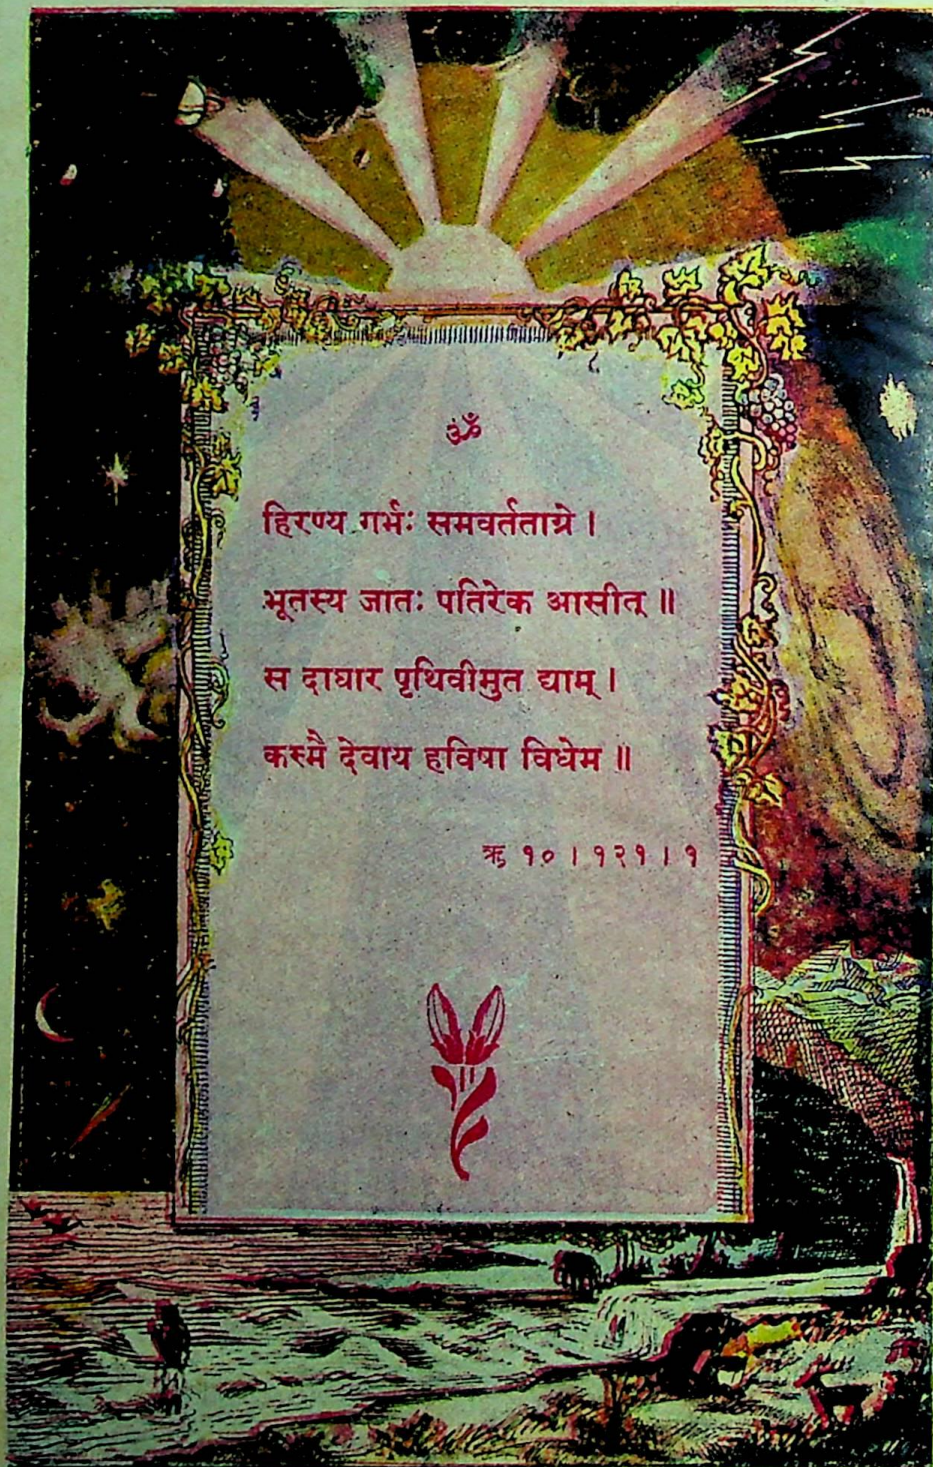 ॐ
हिरण्य गर्भः समवर्तताग्रे ।
भूतस्य जातः पतिरेक आसीत् ॥
स दाधार पृथिवीमुत द्याम् ।
कस्मै देवाय हविषा विधेम ॥
ऋ १० । १२१ । १